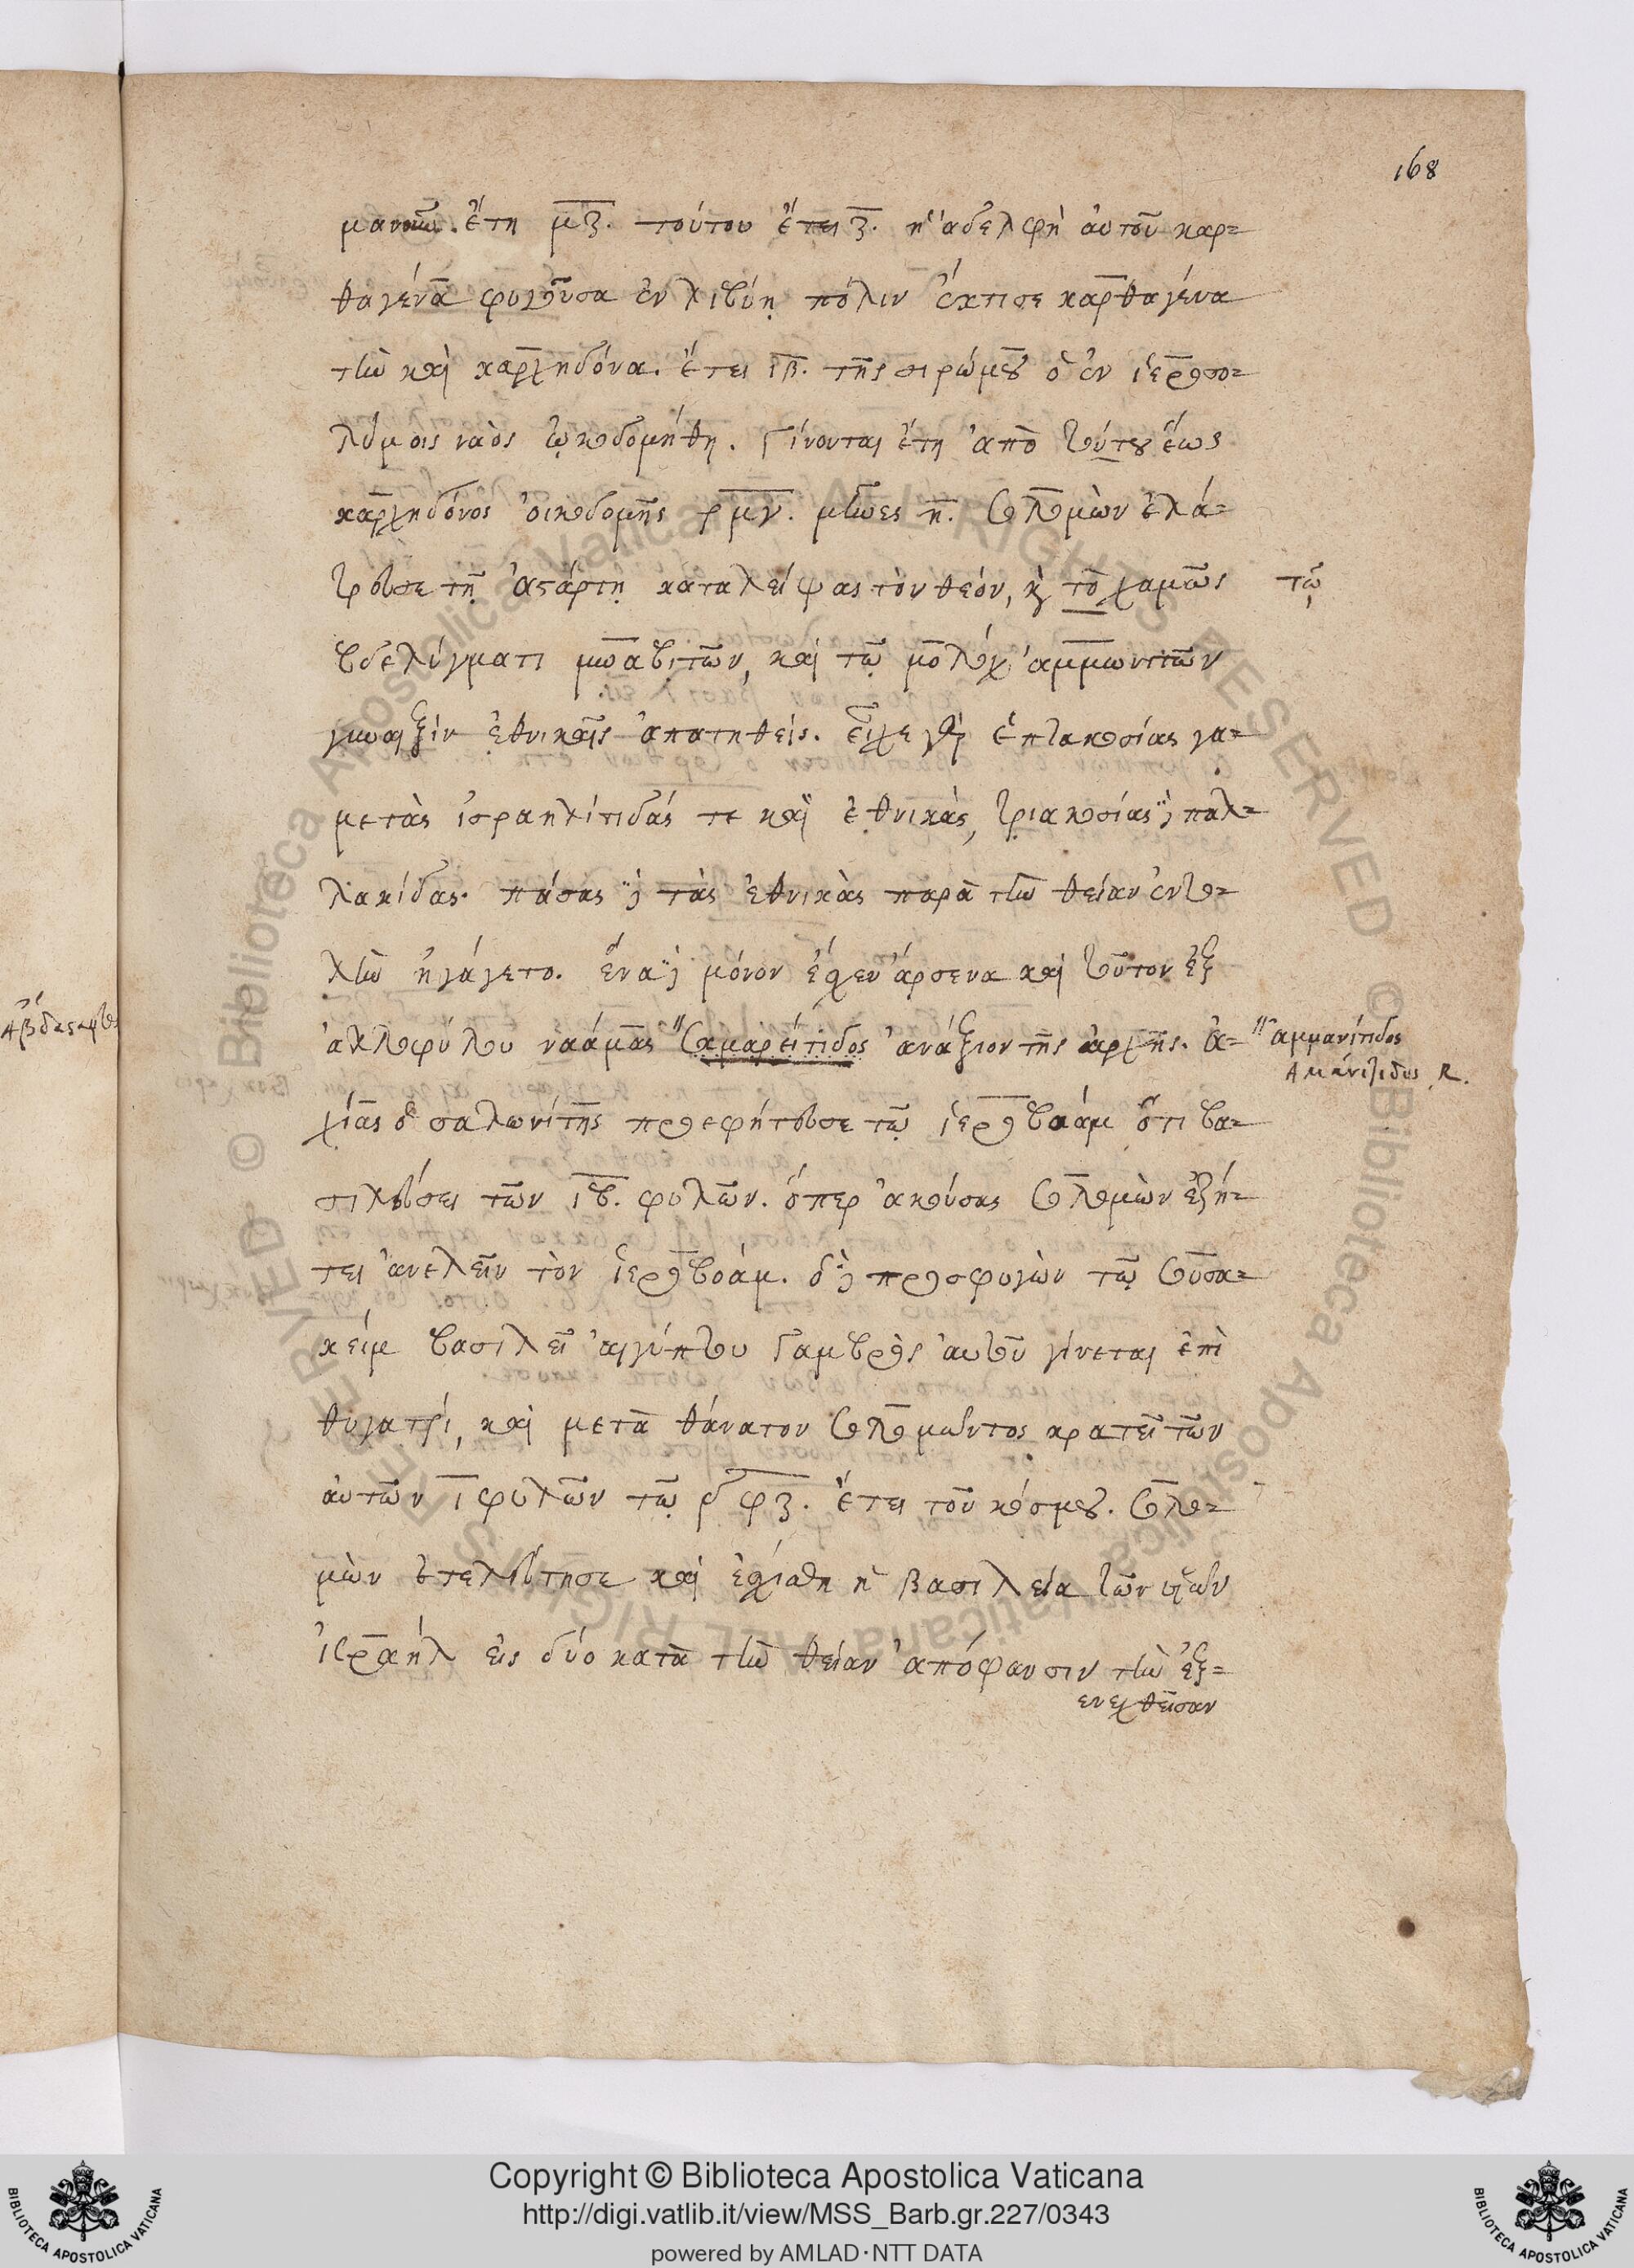 168
μανοῦ. ἔτη μζ. τούτου ἔτει ζ. ἡ ἀδελφὴ αὐτοῦ καρ=
θαγένα φυγοῦσα ἐν λιβύῃ πόλιν ἔκτισε καρθαγένα
τὴν καὶ καρχηδόνα. ἔτει ιβ. τῆς σιρώμου ὁ ἐν ἱεροσο=
λύμοις ναὸς ᾠκοδομήθη. Γίνονται ἔτη ἀπὸ τούτου ἕως
καρχηδόνος οἰκοδομῆς ρμγ. μῆνες η. Σολομὼν ἐλά=
τρευσε τῇ ἀστάρτῃ καταλείψας τὸν θεόν, κ̀ τὸ χαμὼς
τῷ
βδελύγματι μωαβιτῶν, καὶ τῷ μολὸχ ἀμμωνιτῶν
γυναιξὶν ἐθνικαῖς ἀπατηθείς. εἶχε γὰρ ἑπτακοσίας γα=
μετὰς ἰσραηλίτιδάς τε καὶ ἐθνικὰς, τριακοσίας δὲ παλ=
λακίδας. πάσας δὲ τὰς ἐθνικὰς παρὰ τὴν θείαν ἐντο=
λὴν ἠγάγετο. ἕνα δὲ μόνον ἔσχεν ἄρσενα καὶ τοῦτον ἐξ
ἀλλοφύλου ναάμας "Σαμαρείτιδος ἀνάξιον τῆς ἀρχῆς. ἀ=
"ἀμμανίτιδος
Ἀμανίτιδος R.
χίας ὁ σαλωνίτης προεφήτευσε τῷ ἱεροβοὰμ ὅτι βα=
σιλεύσει τῶν ιβ. φυλῶν. ὅπερ ἀκούσας Σολομὼν ἐζή=
τει ἀνελεῖν τὸν ἱεροβοάμ. ὁ δὲ προσφυγὼν τῷ Σουσα=
κεὶμ βασιλεῖ αἰγύπτου Γαμβρὸς αὐτοῦ γίνεται ἐπὶ
θυγατρί, καὶ μετὰ θάνατον Σολομῶντος κρατεῖ τῶν
αὐτῶν ι φυλῶν τῷ ͵δφζ. ἔτει τοῦ κόσμου. Σολο=
μὼν ἐτελεύτησε καὶ ἐσχίσθη ἡ βασιλεία τῶν υἱῶν
ἰσραὴλ εἰς δύο κατὰ τὴν θείαν ἀπόφανσιν τὴν ἐξ=
ενεχθεῖσαν
Copyright © Biblioteca Apostolica Vaticana
http://digi.vatlib.it/view/MSS_Barb.gr.227/0343
powered by AMLAD·NTT DATA
BIBLIOTECA APOSTOLICA VATICANA
BIBLIOTECA APOSTOLICA VATICANA